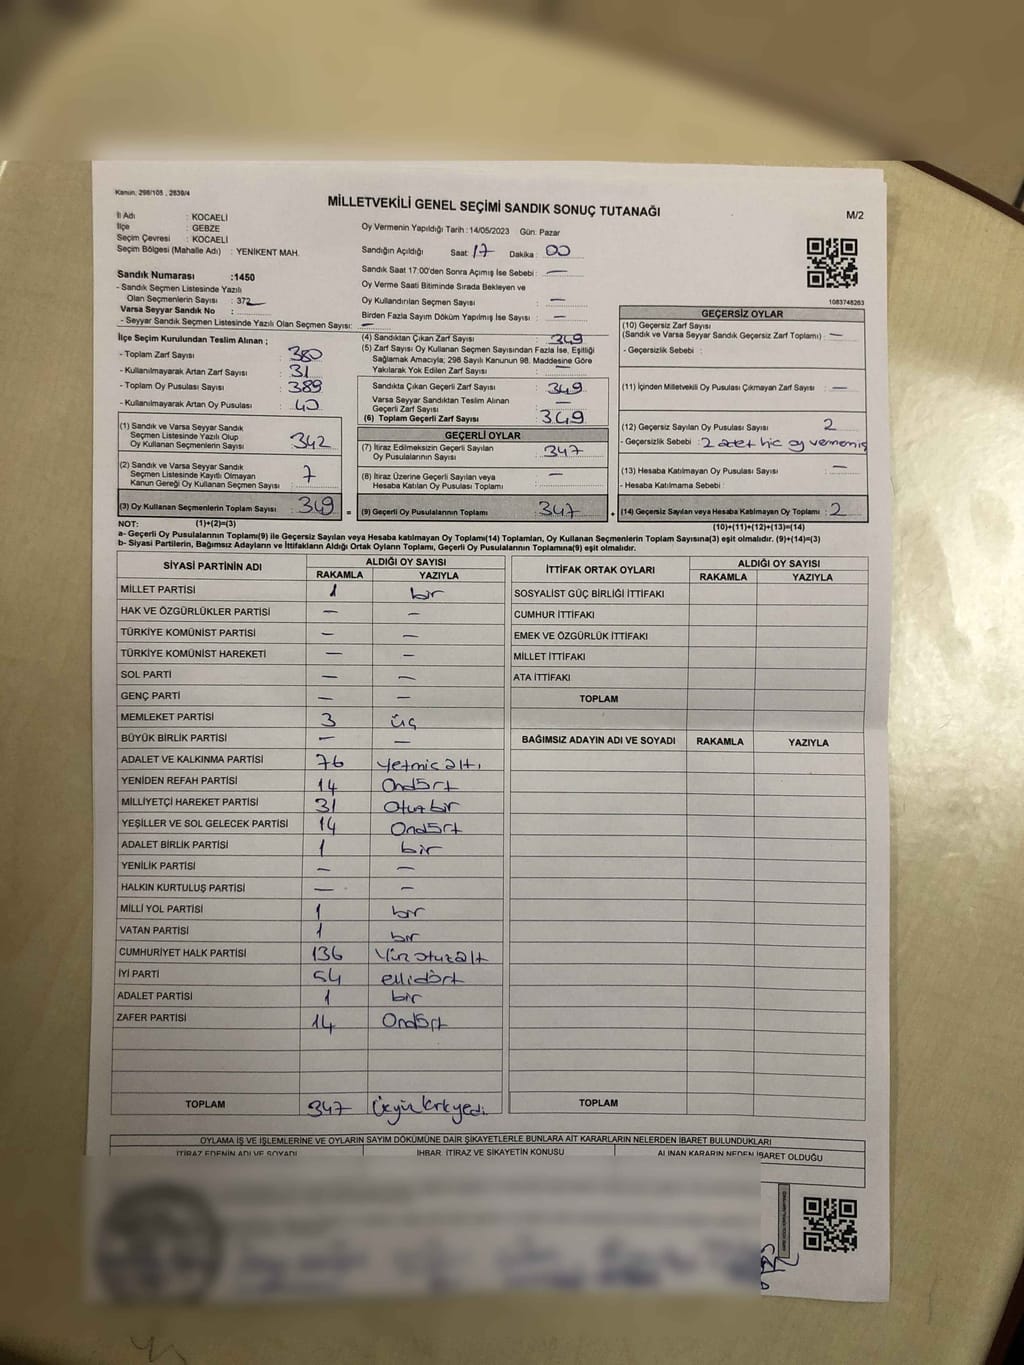 Kanun, 298/105 , 2839/4
MİLLETVEKİLİ GENEL SEÇİMİ SANDIK SONUÇ TUTANAĞI
M/2
İl Adı : KOCAELİ
İlçe : GEBZE
Seçim Çevresi : KOCAELİ
Seçim Bölgesi (Mahalle Adı) : YENİKENT MAH.
Oy Vermenin Yapıldığı Tarih : 14/05/2023 Gün: Pazar
Sandığın Açıldığı Saat: 17 Dakika : 00
Sandık Saat 17:00'den Sonra Açımış İse Sebebi : —
Oy Verme Saati Bitiminde Sırada Bekleyen ve
Oy Kullandırılan Seçmen Sayısı : —
Birden Fazla Sayım Döküm Yapılmış İse Sayısı : —
Sandık Numarası :1450
- Sandık Seçmen Listesinde Yazılı
Olan Seçmenlerin Sayısı : 372
Varsa Seyyar Sandık No :
- Seyyar Sandık Seçmen Listesinde Yazılı Olan Seçmen Sayısı: —
1083748263
İlçe Seçim Kurulundan Teslim Alınan ;
- Toplam Zarf Sayısı : 380
- Kullanılmayarak Artan Zarf Sayısı : 31
- Toplam Oy Pusulası Sayısı : 389
- Kullanılmayarak Artan Oy Pusulası : 40
(1) Sandık ve Varsa Seyyar Sandık
Seçmen Listesinde Yazılı Olup
Oy Kullanan Seçmenlerin Sayısı : 342
(2) Sandık ve Varsa Seyyar Sandık
Seçmen Listesinde Kayıtlı Olmayan
Kanun Gereği Oy Kullanan Seçmen Sayısı : 7
(3) Oy Kullanan Seçmenlerin Toplam Sayısı : 349
(4) Sandıktan Çıkan Zarf Sayısı : 349
(5) Zarf Sayısı Oy Kullanan Seçmen Sayısından Fazla İse, Eşitliği
Sağlamak Amacıyla; 298 Sayılı Kanunun 98. Maddesine Göre
Yakılarak Yok Edilen Zarf Sayısı : —
Sandıkta Çıkan Geçerli Zarf Sayısı : 349
Varsa Seyyar Sandıktan Teslim Alınan
Geçerli Zarf Sayısı : —
(6) Toplam Geçerli Zarf Sayısı : 349
GEÇERLİ OYLAR
(7) İtiraz Edilmeksizin Geçerli Sayılan
Oy Pusulalarının Sayısı : 347
(8) İtiraz Üzerine Geçerli Sayılan veya
Hesaba Katılan Oy Pusulası Toplamı : —
= (9) Geçerli Oy Pusulalarının Toplamı : 347
GEÇERSİZ OYLAR
(10) Geçersiz Zarf Sayısı
(Sandık ve Varsa Seyyar Sandık Geçersiz Zarf Toplamı) : —
- Geçersizlik Sebebi :
(11) İçinden Milletvekili Oy Pusulası Çıkmayan Zarf Sayısı : —
(12) Geçersiz Oy Pusulası Sayısı : 2
- Geçersizlik Sebebi : 2 adet hiç oy vermemiş
(13) Hesaba Katılmayan Oy Pusulası Sayısı : —
- Hesaba Katılmama Sebebi :
+ (14) Geçersiz Sayılan veya Hesaba Katılmayan Oy Toplamı : 2
NOT: (1)+(2)=(3)
(10)+(11)+(12)+(13)=(14)
a- Geçerli Oy Pusulalarının Toplamı(9) ile Geçersiz Sayılan veya Hesaba katılmayan Oy Toplamı(14) Toplamları, Oy Kullanan Seçmenlerin Toplam Sayısına(3) eşit olmalıdır. (9)+(14)=(3)
b- Siyasi Partilerin, Bağımsız Adayların ve İttifakların Aldığı Ortak Oyların Toplamı, Geçerli Oy Pusulalarının Toplamına(9) eşit olmalıdır.
SİYASİ PARTİNİN ADI ALDIĞI OY SAYISI
RAKAMLA YAZIYLA
MİLLET PARTİSİ 1 bir
HAK VE ÖZGÜRLÜKLER PARTİSİ — —
TÜRKİYE KOMÜNİST PARTİSİ — —
TÜRKİYE KOMÜNİST HAREKETİ — —
SOL PARTİ — —
GENÇ PARTİ — —
MEMLEKET PARTİSİ 3 üç
BÜYÜK BİRLİK PARTİSİ — —
ADALET VE KALKINMA PARTİSİ 76 Yetmiş altı
YENİDEN REFAH PARTİSİ 14 Ondört
MİLLİYETÇİ HAREKET PARTİSİ 31 Otuz bir
YEŞİLLER VE SOL GELECEK PARTİSİ 14 Ondört
ADALET BİRLİK PARTİSİ 1 bir
YENİLİK PARTİSİ — —
HALKIN KURTULUŞ PARTİSİ — —
MİLLİ YOL PARTİSİ 1 bir
VATAN PARTİSİ 1 bir
CUMHURİYET HALK PARTİSİ 136 Yüz otuz altı
İYİ PARTİ 54 ellidört
ADALET PARTİSİ 1 bir
ZAFER PARTİSİ 14 Ondört
TOPLAM 347 Üçyüz kırkyedi
İTTİFAK ORTAK OYLARI ALDIĞI OY SAYISI
RAKAMLA YAZIYLA
SOSYALİST GÜÇ BİRLİĞİ İTTİFAKI
CUMHUR İTTİFAKI
EMEK VE ÖZGÜRLÜK İTTİFAKI
MİLLET İTTİFAKI
ATA İTTİFAKI
TOPLAM
BAĞIMSIZ ADAYIN ADI VE SOYADI RAKAMLA YAZIYLA
TOPLAM
OYLAMA İŞ VE İŞLEMLERİNE VE OYLARIN SAYIM DÖKÜMÜNE DAİR ŞİKAYETLERLE BUNLARA AİT KARARLARIN NELERDEN İBARET BULUNDUKLARI
İTİRAZ EDENİN ADI VE SOYADI İHBAR, İTİRAZ VE ŞİKAYETİN KONUSU ALINAN KARARIN NEDEN İBARET OLDUĞU